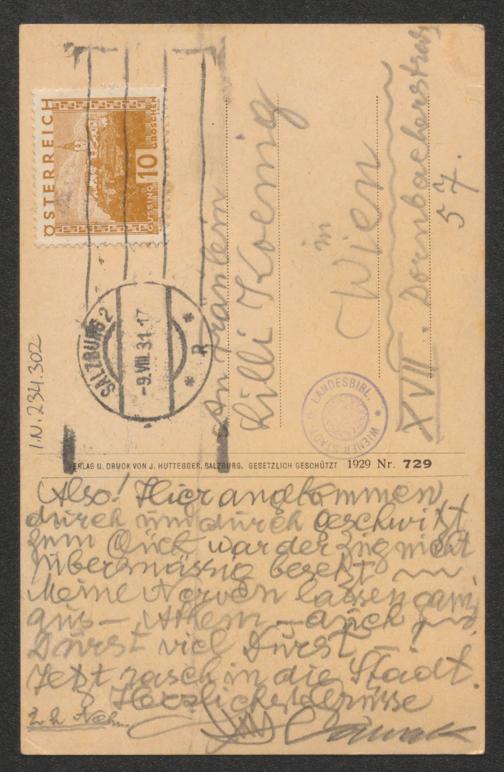 ÖSTERREICH
GÜSSING 10 GROSCHEN
SALZBURG 2
-9.VIII.31-17
* R *
I.N. 234.302
An Fräulein
Lilli Koenig
in
Wien
XVII. Dornbacherstrasse
57.
LANDESBIBL. * WIENER STADT
VERLAG U. DRUCK VON J. HUTTEGGER, SALZBURG. GESETZLICH GESCHÜTZT 1929 Nr. 729
Also! Hier angekommen,
durch und durch geschwitzt
zum Glück war der Zug nicht
übermässig besetzt
Meine Nerven lassen ganz
aus – Athem – auch
Durst viel Durst –
Jetzt rasch in die Stadt.
Herzlichste Grüsse
2 h Nachm.